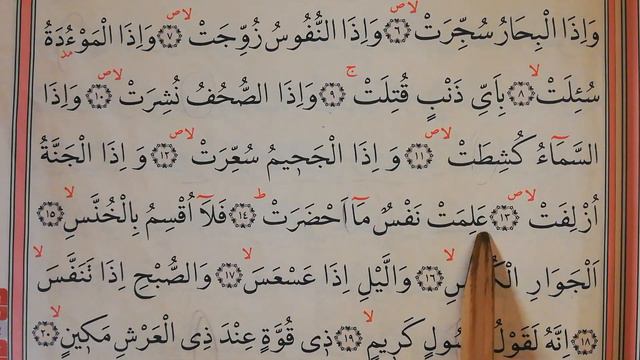 وَاِذَا الْبِحَارُ سُجِّرَتْ ﴿٦﴾ لاص وَاِذَا النُّفُوسُ زُوِّجَتْ ﴿٧﴾ لاص وَاِذَا الْمَوْءُ۫دَةُ
سُئِلَتْ ﴿٨﴾ لا بِاَىِّ ذَنْبٍ قُتِلَتْ ﴿٩﴾ ج وَاِذَا الصُّحُفُ نُشِرَتْ ﴿١٠﴾ لاص وَاِذَا
السَّمَٓاءُ كُشِطَتْ ﴿١١﴾ لاص وَاِذَا الْجَح۪يمُ سُعِّرَتْ ﴿١٢﴾ لاص وَاِذَا الْجَنَّةُ
اُزْلِفَتْ ﴿١٣﴾ لاص عَلِمَتْ نَفْسٌ مَٓا اَحْضَرَتْ ﴿١٤﴾ ط فَلَٓا اُقْسِمُ بِالْخُنَّسِ ﴿١٥﴾ لا
اَلْجَوَارِ ﴿١٦﴾ لا وَالَّيْلِ اِذَا عَسْعَسَ ﴿١٧﴾ لا وَالصُّبْحِ اِذَا تَنَفَّسَ
﴿١٨﴾ لا اِنَّهُ لَقَوْلُ كَر۪يمٍ ﴿١٩﴾ لا ذ۪ى قُوَّةٍ عِنْدَ ذِى الْعَرْشِ مَك۪ينٍ ﴿٢٠﴾ لا